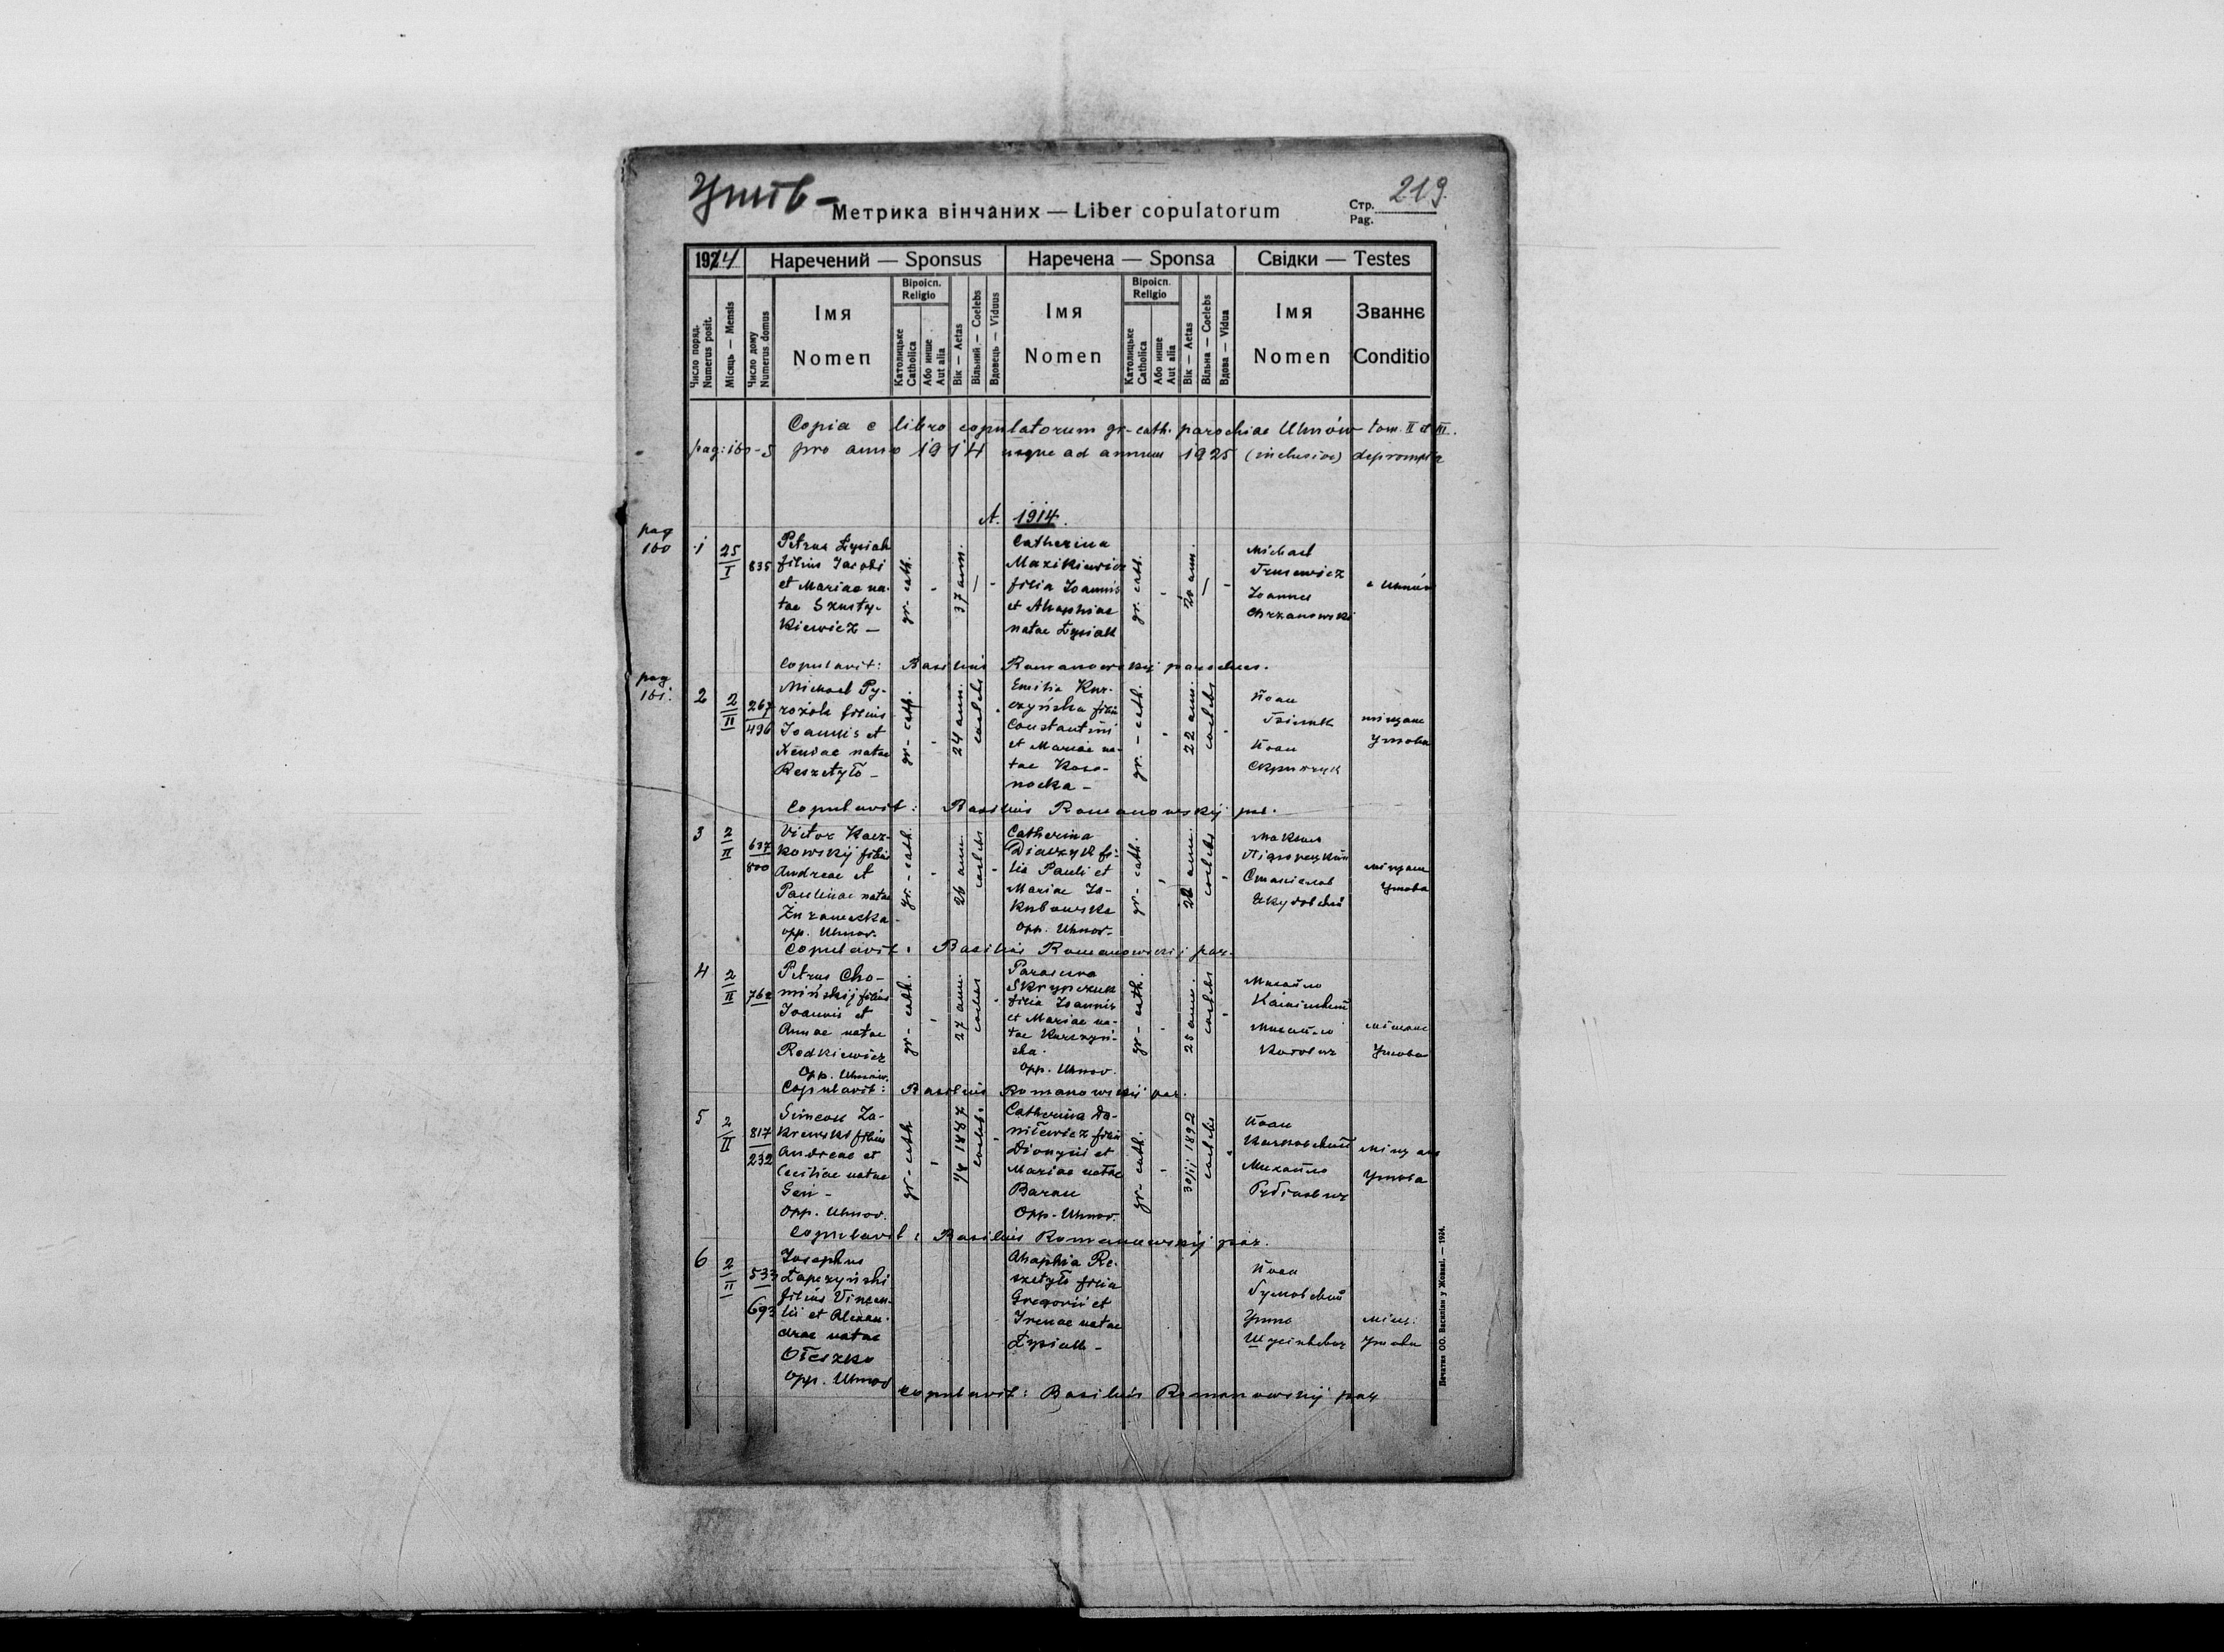 Угнів -
219.
Метрика вінчаних — Liber copulatorum
Стр.
Pag.
1914
Наречений — Sponsus
Наречена — Sponsa
Свідки — Testes
Число поряд.
Numerus posit.
Місяць — Mensis
Число дому
Numerus domus
Імя
Nomen
Віроісп.
Religio
Католицьке
Catholica
Або инше
Aut alia
Вік — Aetas
Вільний — Coelebs
Вдовець — Viduus
Імя
Nomen
Віроісп.
Religio
Католицьке
Catholica
Або инше
Aut alia
Вік — Aetas
Вільна — Coelebs
Вдова — Vidua
Імя
Nomen
Званнє
Conditio
Copia e libro copulatorum gr-cath. parochiae Uhnów tom. II et III.
pro anno 1914 usque ad annum 1925 (inclusive) deprompta
A. 1914.
pag
160
1
25
I
835
Petrus Łysiak
filius Jacobi
et Mariae na-
tae Szusty-
kiewicz —
gr-cath.
37 ann.
Catherina
filia Joannis
et Ahaphiae
natae Łysiak
gr-cath.
20 ann.
Michael
Joannes
Chrzanowski
e Uhnów
Copulavit: Basilius Romanowskij parochus.
pag
161.
2
2
II
267
496
Michael Py-
rożok filius
Joannis et
Xeniae natae
Reszetyło -
gr-cath.
24 ann.
coelebs
Emilia Kur-
czyńska filia
Constantini
et Mariae na-
tae Koso-
nocka -
gr.-cath.
22 ann.
coelebs
Йоан
Йоан
Скрипчук
міщане
Угнова
Copulavit: Basilius Romanowskij par.
3
2
II
637
800
Victor Kacz-
kowskij filius
Andreae et
Paulinae natae
opp. Uhnov.
gr.-cath.
26 ann.
coelebs
Catherina
Diaczyk fi-
lia Pauli et
Mariae Ja-
kubowska
opp. Uhnov.
gr-cath.
coelebs
Максим
Станіслав
міщане
Угнова
Copulavit: Basilius Romanowskij par.
4
2
II
762
Petrus Cho-
mińskij filius
Joannis et
Annae natae
Redkiewicz
Opp. Uhnów.
gr-cath.
27 ann.
coelebs
Parasceva
Skrypczuk
filia Joannis
et Mariae na-
tae Kurczyń-
ska.
Opp. Uhnov.
gr-cath.
25 ann.
coelebs
Михайло
Михайло
міщане
Угнова
Copulavit: Basilius Romanowskij par.
5
2
II
817
232
Simeon Za-
krewski filius
Andreae et
Ceciliae natae
Opp. Uhnov.
gr-cath
1887
coelebs
Catherina Da-
niłewicz filia
Dionysii et
Mariae natae
Baran
Opp. Uhnov.
gr-cath.
30/11 1892
coelebs
Йоан
Качковський
Михайло
Міщане
Угнова
Copulavit: Basilius Romanowskij par.
6
2
II
533
693
Josephus
Łapczyński
filius Vincen-
tii et Alexan-
drae natae
Ołeszko
opp. Uhnov
Ahaphia Re-
szetyło filia
Gregorii et
Irenae natae
Łysiak -
Йоан
Гумовський
міщ.
Угнова
Copulavit: Basilius Romanowskij par
Печатня ОО. Василіян у Жовкві. — 1924.